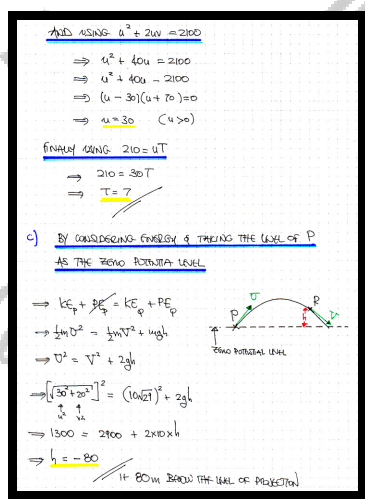 AND USING u² + 2uv = 2100
⇒ u² + 40u = 2100
⇒ u² + 40u - 2100
⇒ (u - 30)(u + 70) = 0
⇒ u = 30 (u > 0)
FINALLY USING 210 = uT
⇒ 210 = 30T
⇒ T = 7
c) BY CONSIDERING ENERGY & TAKING THE LEVEL OF P
AS THE ZERO POTENTIAL LEVEL
⇒ KE_P + PE_P = KE_Q + PE_Q
⇒ ½mU² = ½mV² + mgh
⇒ U² = V² + 2gh
⇒ [√(30² + 20²)]² = (10√29)² + 2gh
↑ ↑
u² v²
⇒ 1300 = 2900 + 2×10×h
⇒ h = -80
IE 80m BELOW THE LEVEL OF PROJECTION
P
U
R
h
V
ZERO POTENTIAL LEVEL